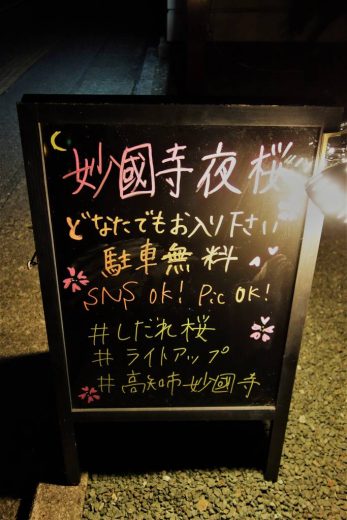 妙國寺夜桜
どなたでもお入り下さい
駐車無料
SNS OK! Pic OK!
#しだれ桜
#ライトアップ
#高知市妙國寺